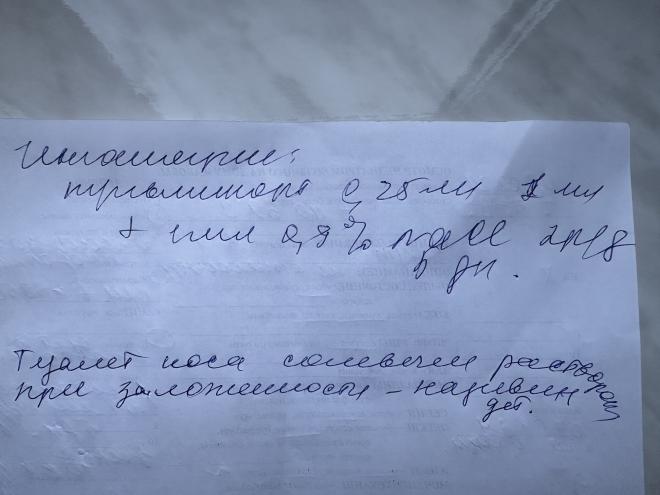 Ингаляции:
пульмикорт 0,25 мл 1 мл
+ 1 мл 0,9% NaCl 2 р/д
5 дн.
Туалет носа солевым раствором
при заложенности - називин
дет.